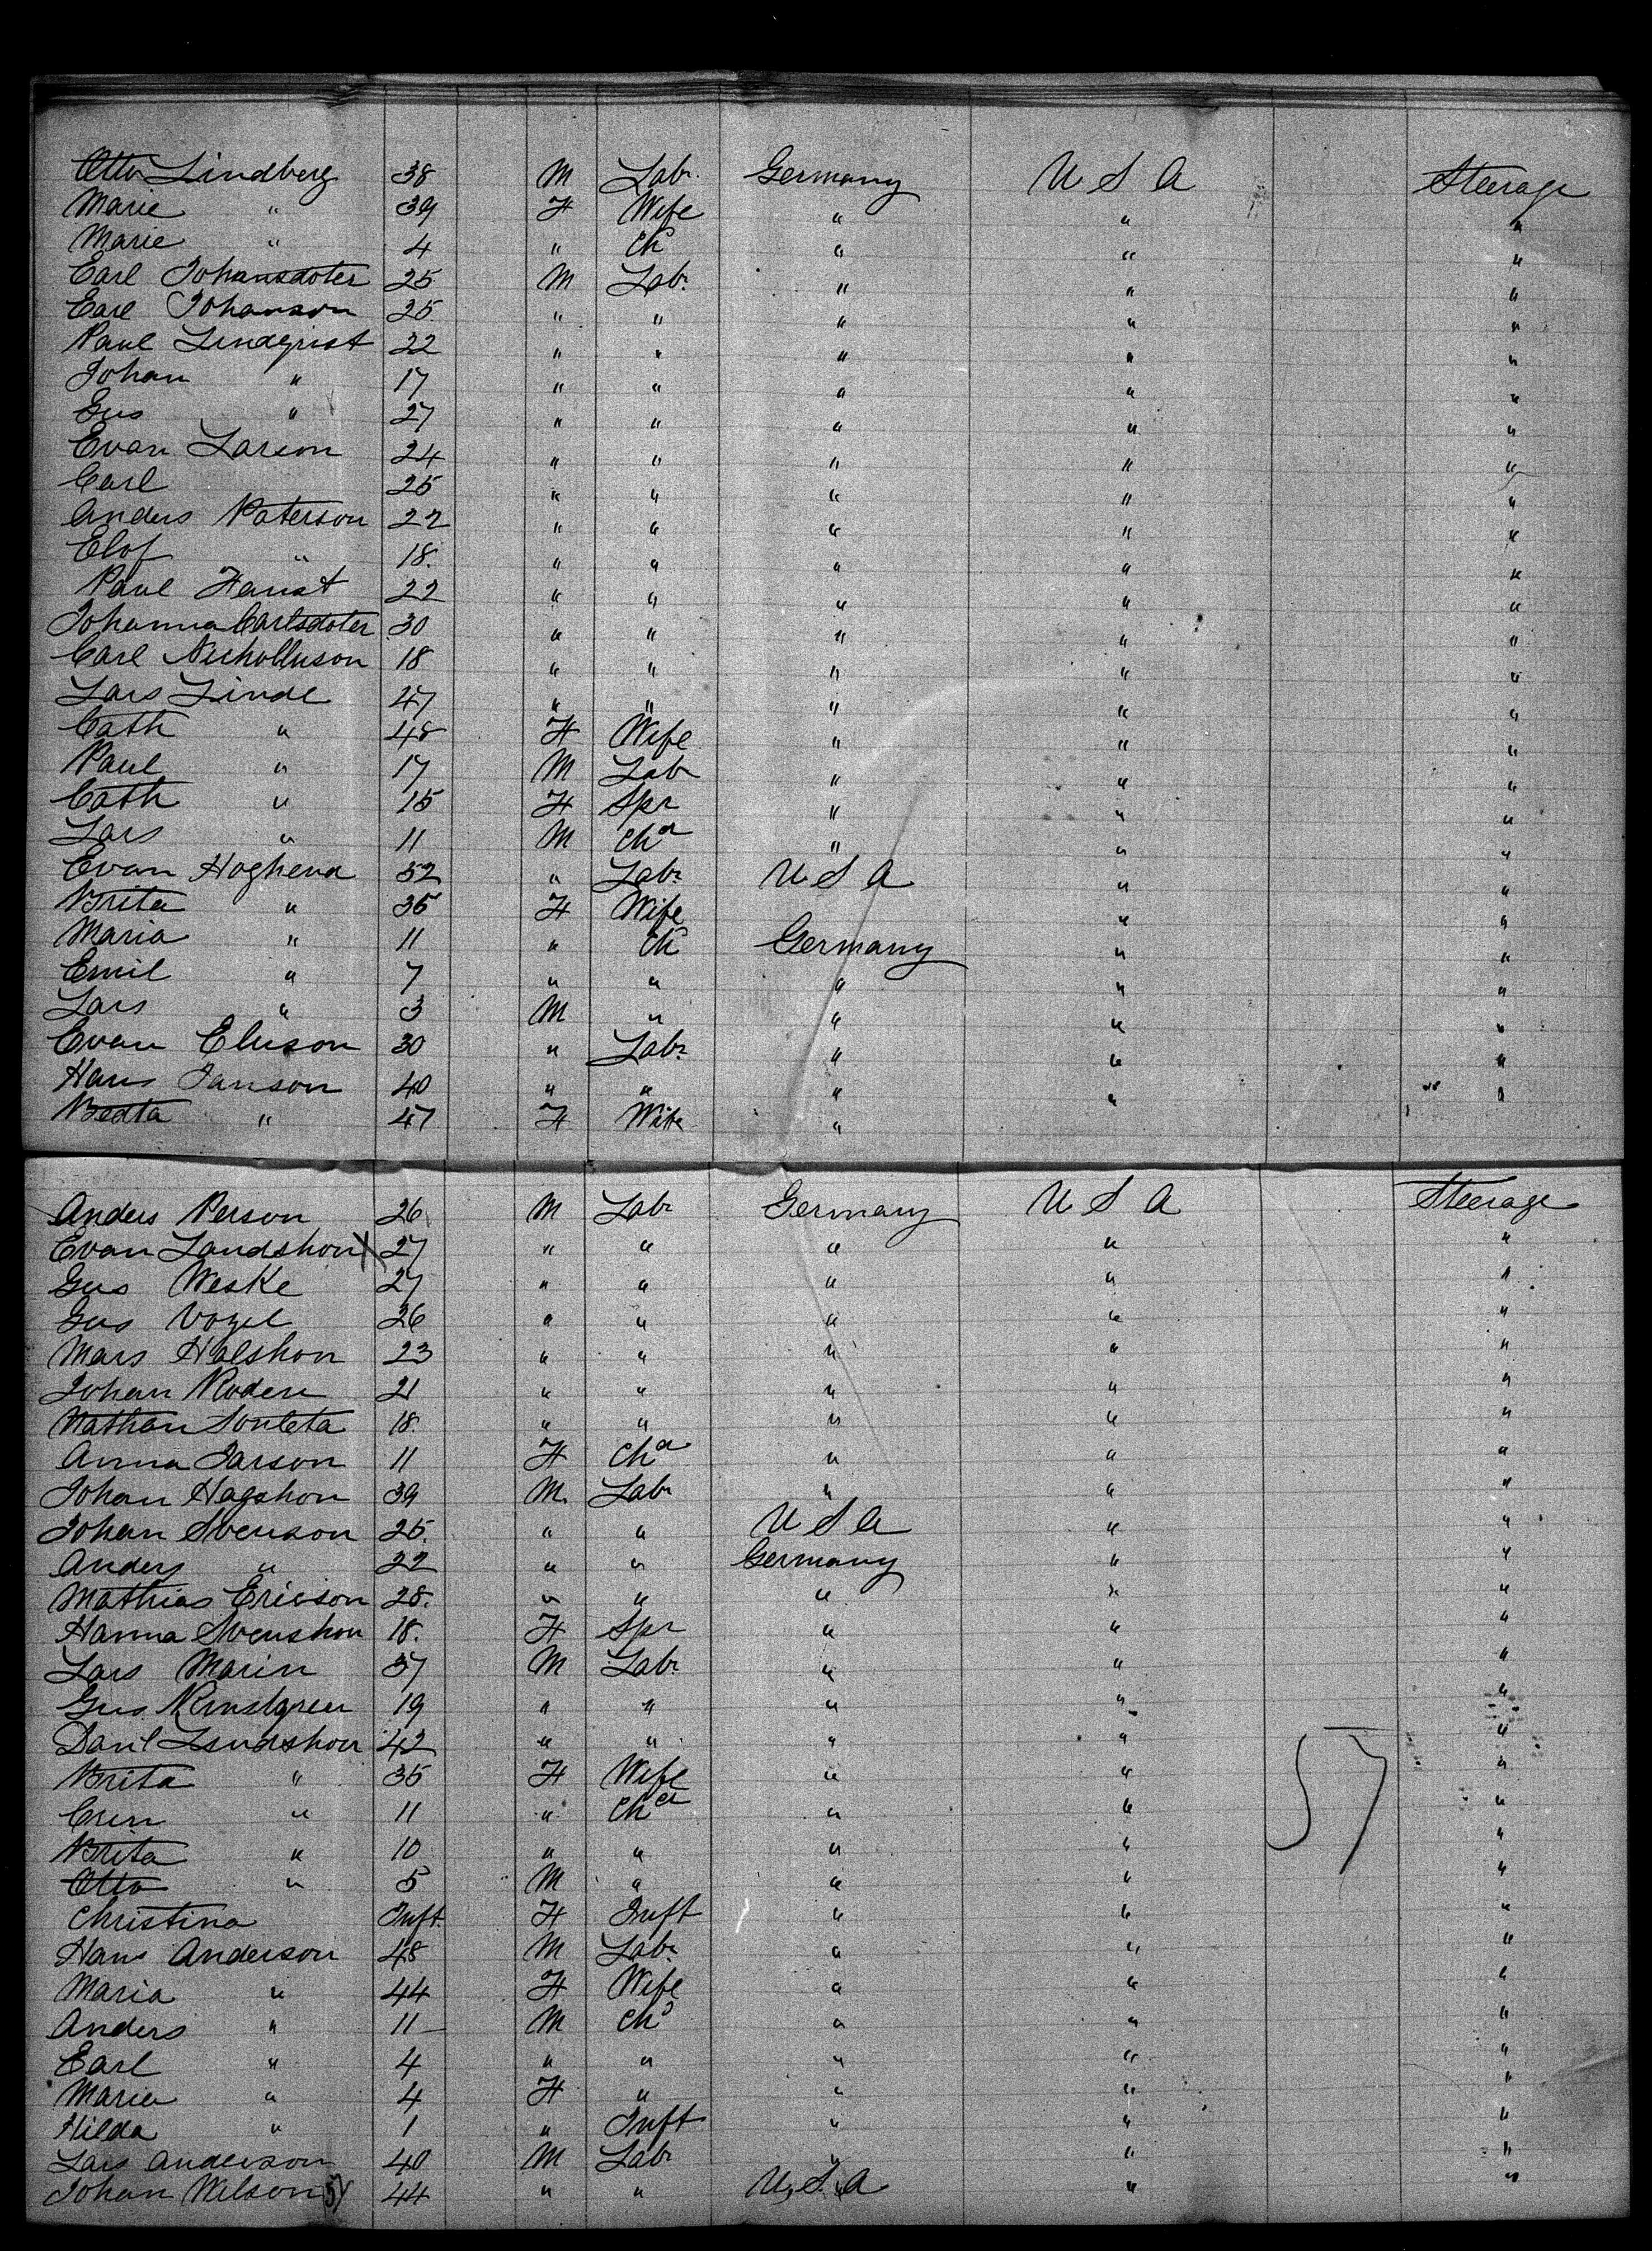 Otto Lindberg 38 M Labr. Germany U S A Steerage
Marie " 39 F Wife " " "
Marie " 4 " Chd " " "
Carl Johansdoter 25 M Labr. " " "
Carl Johanson 25 " " " " "
Paul Lindqvist 22 " " " " "
Johan " 17 " " " " "
Gus " 27 " " " " "
Evan Larson 24 " " " " "
Carl 25 " " " " "
Anders Paterson 22 " " " " "
Elof " 18. " " " " "
Paul Faust 22 " " " " "
Johanna Carlsdoter 30 " " " " "
Carl Nicholluson 18 " " " " "
Lars Linde 47 " " " " "
Cath " 48 F Wife " " "
Paul " 17 M Labr " " "
Cath " 15 F Spr " " "
Lars " 11 M Chd " " "
Evan Hoghend 52 " Labr. U S A " "
Brita " 35 F Wife " "
Maria " 11 " Chd Germany " "
Emil " 7 " " " " "
Lars " 3 M " " " "
Evan Eluson 30 " Labr. " " "
Hans Janson 40 " " " " "
Bedta " 47 F Wife "
Anders Person 26 M Labr Germany U S A Steerage
Evan Landshon X 27 " " " " "
Gus Weske 27 " " " " "
Gus Vogel 26 " " " " "
Mars Halshon 23 " " " " "
Johan Roden 21 " " " " "
Nathan Souleta 18. " " " " "
Anna Larson 11 F Chd " " "
Johan Hagshon 39 M. Labr " " "
Johan Svenson 25. " " U S A " "
Anders " 22 " " Germany " "
Mathias Ericson 28. " " " " "
Hanna Svenshon 18. F Spr " " "
Lars Marin 37 M Labr " " "
Gus 19 " " " " "
Danl Lindshon 42 " " " " "
Brita " 35 F Wife " " "
Crin " 11 " Chd " " "
Brita " 10 " " " " "
Otto " 5 M " " " "
Christina Inft. F Inft " " "
Hans Anderson 48 M Labr. " " "
Maria " 44 F Wife " " "
Anders " 11 M Chd " " "
Carl " 4 " " " " "
Maria " 4 F " " " "
Hilda " 1 " Inft " " "
Lars Anderson 40 M Labr " " "
Johan Wilson 57 44 " " U.S.A " "
57